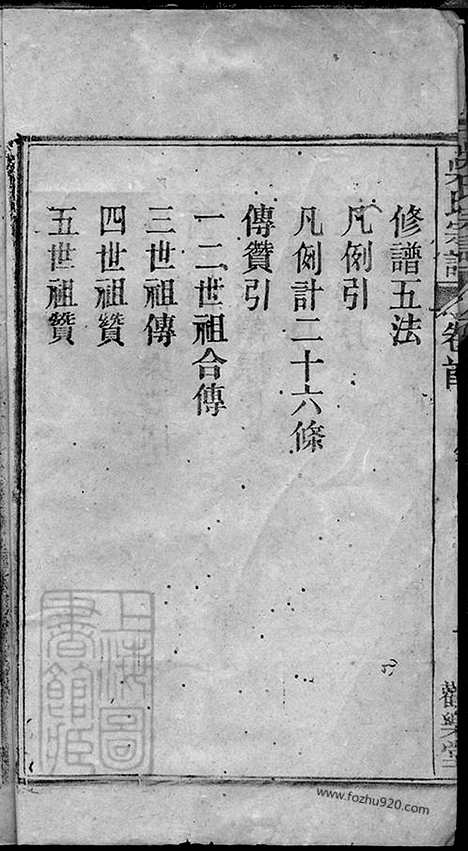 修譜五法
凡例引
凡例計二十六條
傳贊引
一二世祖合傳
三世祖傳
四世祖贊
五世祖贊
氏宗譜
卷首
上海圖書館藏
www.fozhu920.com